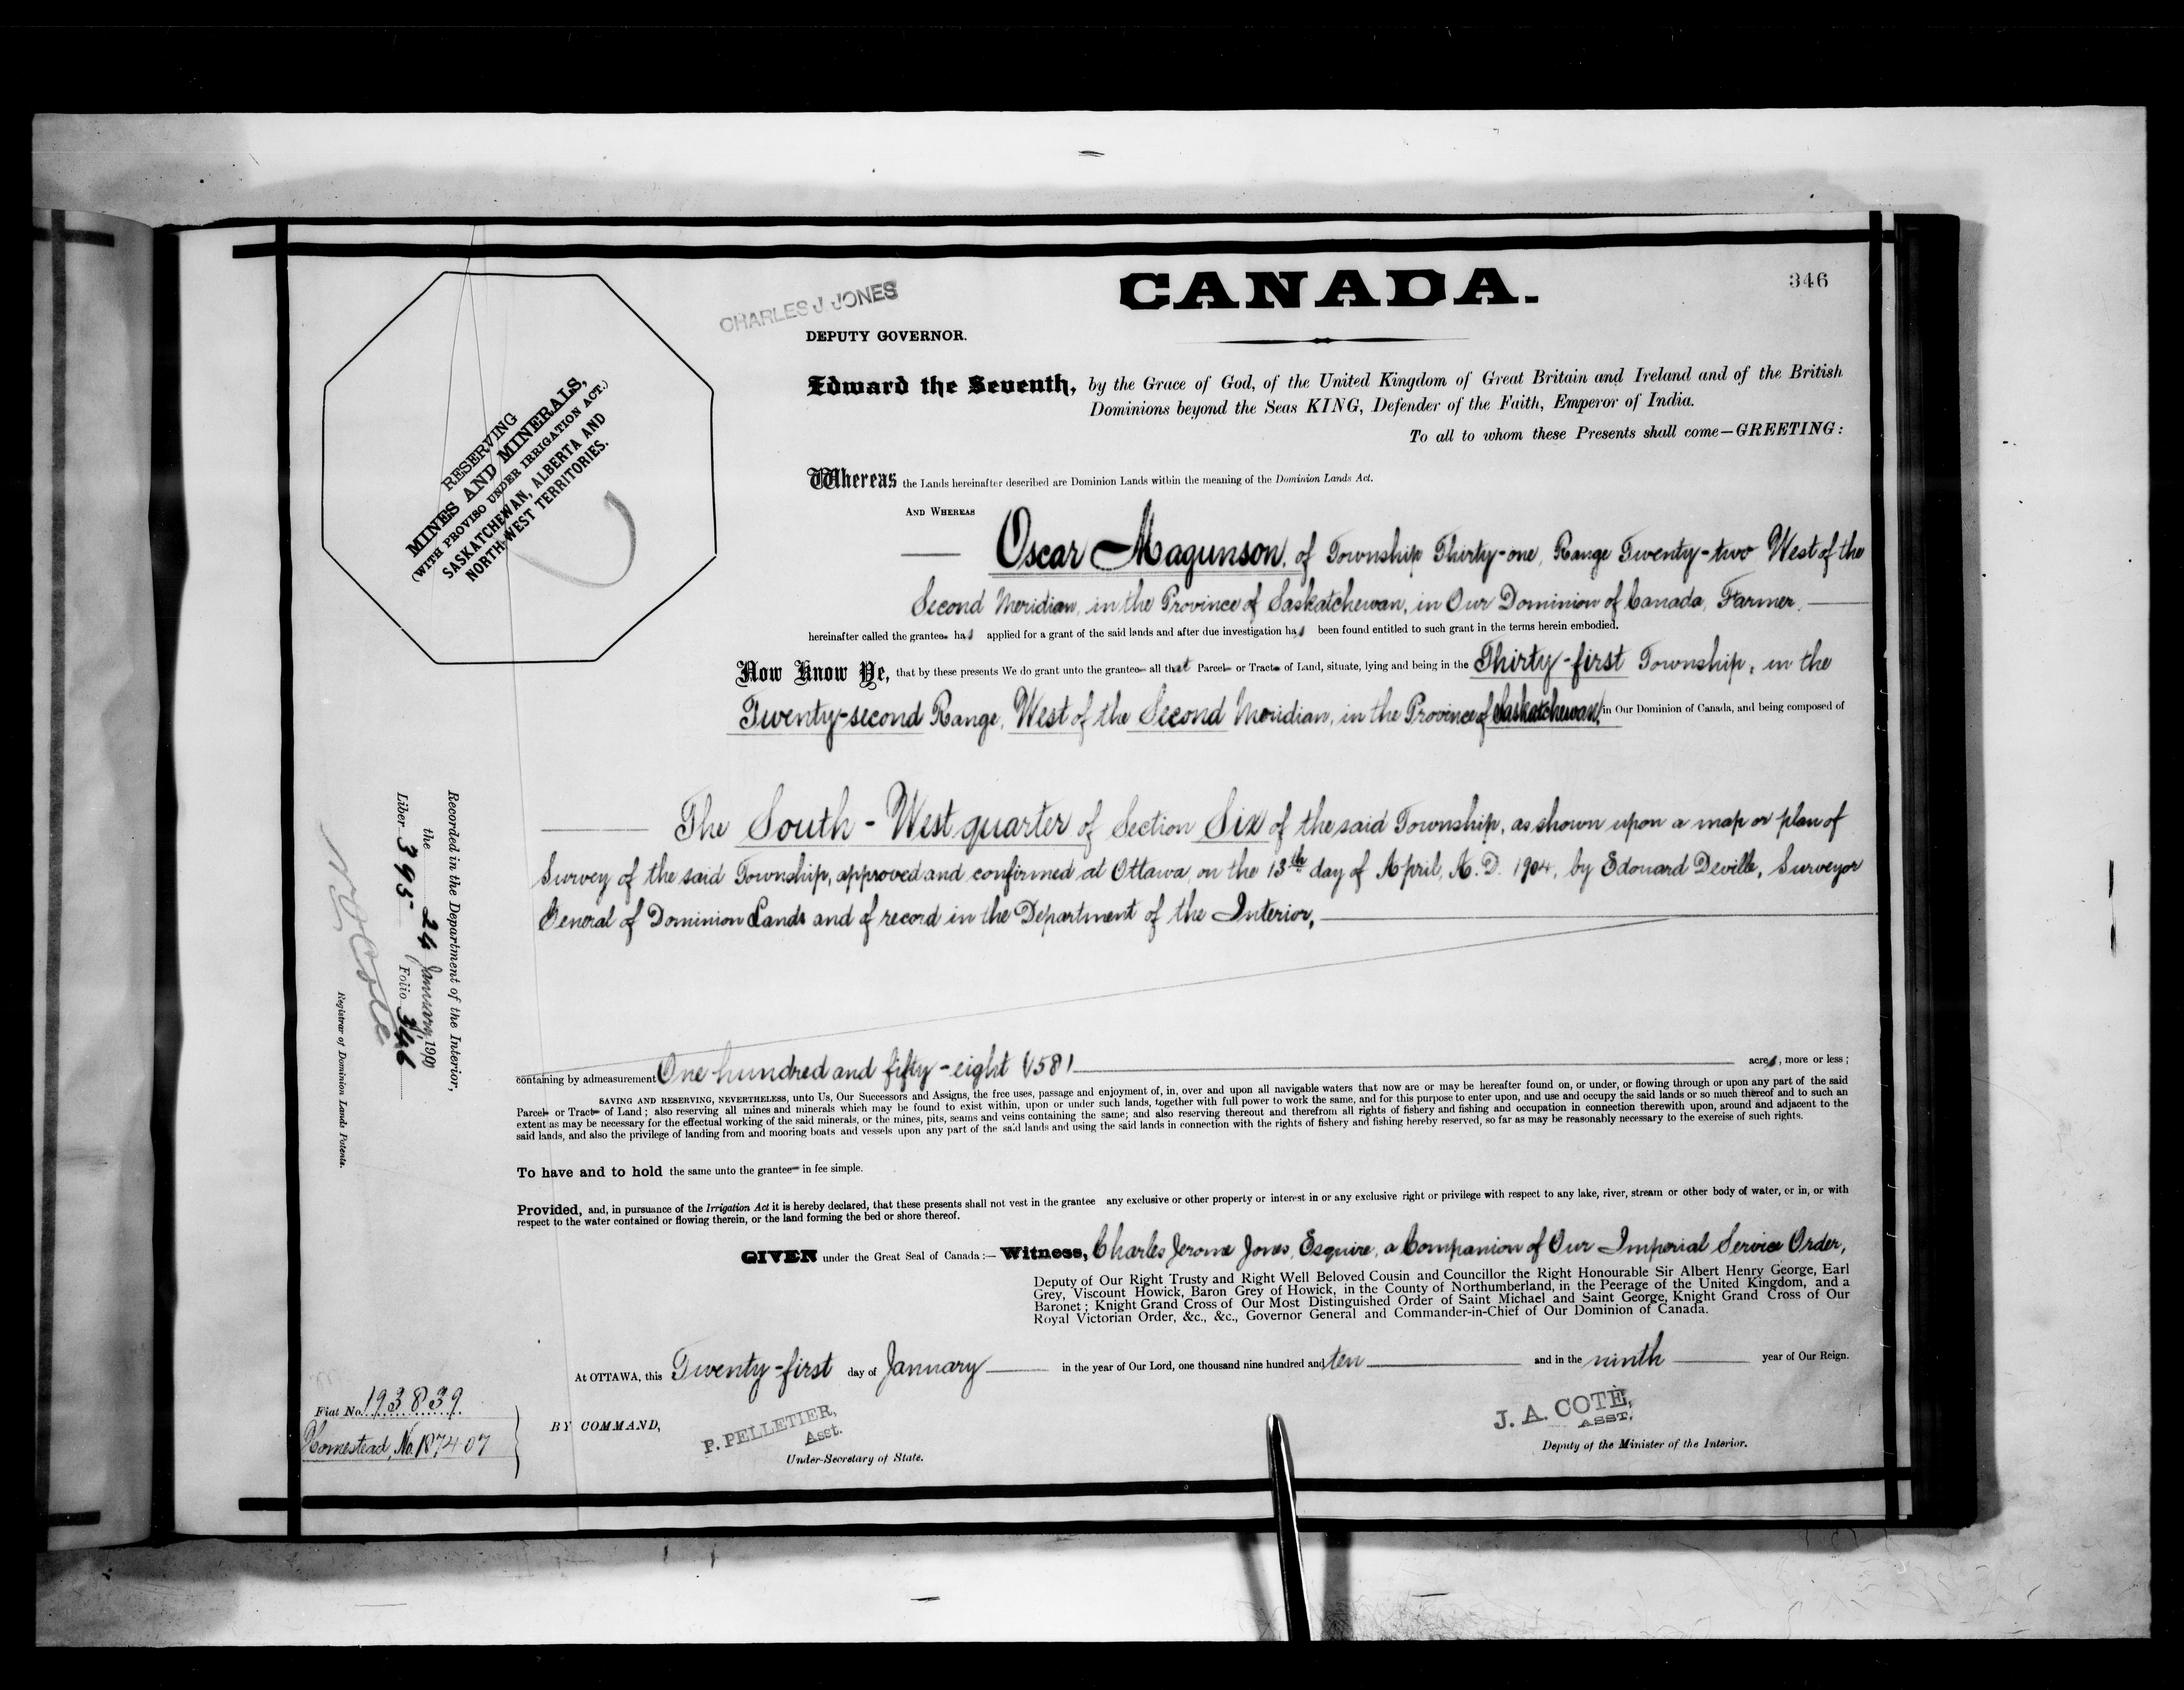 346
CANADA.
CHARLES J. JONES
DEPUTY GOVERNOR.
RESERVING
MINES AND MINERALS,
(WITH PROVISO UNDER IRRIGATION ACT.)
SASKATCHEWAN, ALBERTA AND
NORTH-WEST TERRITORIES.
Edward the Seventh, by the Grace of God, of the United Kingdom of Great Britain and Ireland and of the British
Dominions beyond the Seas KING, Defender of the Faith, Emperor of India.
To all to whom these Presents shall come—GREETING:
Whereas the Lands hereinafter described are Dominion Lands within the meaning of the Dominion Lands Act.
AND WHEREAS
Oscar Magunson, of Township Thirty-one, Range Twenty-two West of the
Second Meridian, in the Province of Saskatchewan, in Our Dominion of Canada, Farmer,
hereinafter called the grantee has applied for a grant of the said lands and after due investigation has been found entitled to such grant in the terms herein embodied.
Now Know Ye, that by these presents We do grant unto the grantee all that Parcel or Tract of Land, situate, lying and being in the Thirty-first Township, in the
Twenty-second Range, West of the Second Meridian, in the Province of Saskatchewan, in Our Dominion of Canada, and being composed of
The South-West quarter of Section Six of the said Township, as shown upon a map or plan of
Survey of the said Township, approved and confirmed at Ottawa, on the 13th day of April, A.D. 1904, by Edouard Deville, Surveyor
General of Dominion Lands and of record in the Department of the Interior,
containing by admeasurement One hundred and fifty-eight (158) acres, more or less;
SAVING AND RESERVING, NEVERTHELESS, unto Us, Our Successors and Assigns, the free uses, passage and enjoyment of, in, over and upon all navigable waters that now are or may be hereafter found on, or under, or flowing through or upon any part of the said
Parcel or Tract of Land; also reserving all mines and minerals which may be found to exist within, upon or under such lands, together with full power to work the same, and for this purpose to enter upon, and use and occupy the said lands or so much thereof and to such an
extent as may be necessary for the effectual working of the said minerals, or the mines, pits, seams and veins containing the same; and also reserving thereout and therefrom all rights of fishery and fishing and occupation in connection therewith upon, around and adjacent to the
said lands, and also the privilege of landing from and mooring boats and vessels upon any part of the said lands and using the said lands in connection with the rights of fishery and fishing hereby reserved, so far as may be reasonably necessary to the exercise of such rights.
To have and to hold the same unto the grantee in fee simple.
Provided, and, in pursuance of the Irrigation Act it is hereby declared, that these presents shall not vest in the grantee any exclusive or other property or interest in or any exclusive right or privilege with respect to any lake, river, stream or other body of water, or in, or with
respect to the water contained or flowing therein, or the land forming the bed or shore thereof.
GIVEN under the Great Seal of Canada:— Witness, Charles Jerome Jones, Esquire, a Companion of Our Imperial Service Order,
Deputy of Our Right Trusty and Right Well Beloved Cousin and Councillor the Right Honourable Sir Albert Henry George, Earl
Grey, Viscount Howick, Baron Grey of Howick, in the County of Northumberland, in the Peerage of the United Kingdom, and a
Baronet; Knight Grand Cross of Our Most Distinguished Order of Saint Michael and Saint George, Knight Grand Cross of Our
Royal Victorian Order, &c., &c., Governor General and Commander-in-Chief of Our Dominion of Canada.
At OTTAWA, this Twenty-first day of January in the year of Our Lord, one thousand nine hundred and ten and in the ninth year of Our Reign.
BY COMMAND,
P. PELLETIER,
Asst.
Under-Secretary of State.
J. A. COTÉ,
ASST.
Deputy of the Minister of the Interior.
Recorded in the Department of the Interior,
the 24 January, 190
Liber 395 Folio 346
Registrar of Dominion Lands Patents.
Fiat No. 193839
Homestead, No. 187407